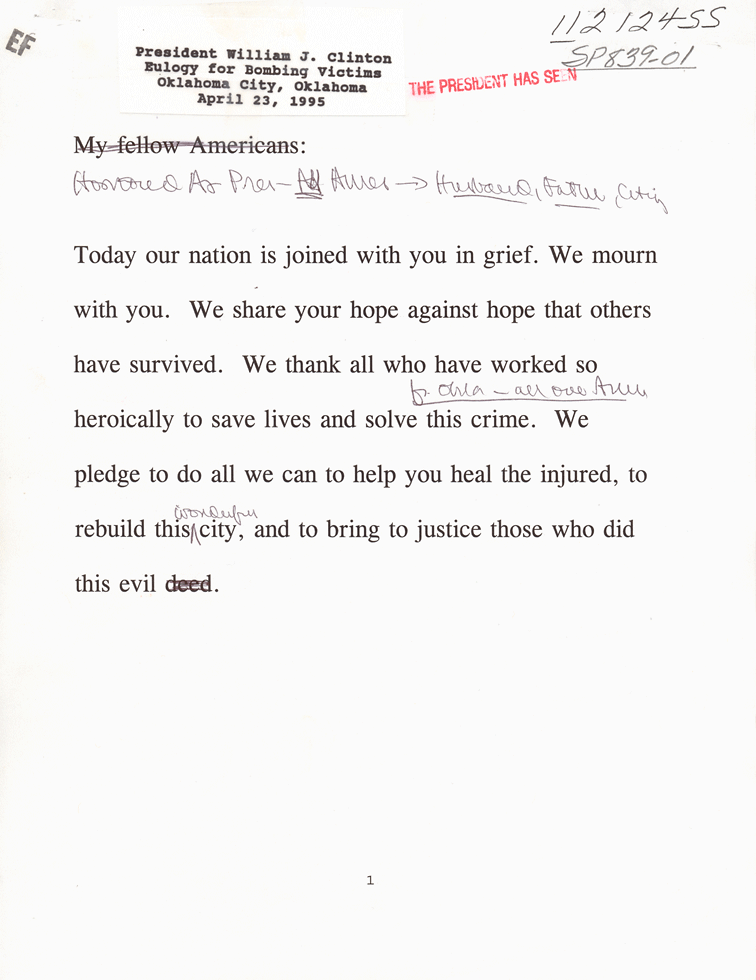 EF
President William J. Clinton
Eulogy for Bombing Victims
Oklahoma City, Oklahoma
April 23, 1995
112124SS
SP839-01
THE PRESIDENT HAS SEEN
My fellow Americans:
Honored As Pres - All Amer → Husband, Father, Citiz
Today our nation is joined with you in grief. We mourn
with you. We share your hope against hope that others
have survived. We thank all who have worked so
fr. Okla - all over Amer
heroically to save lives and solve this crime. We
pledge to do all we can to help you heal the injured, to
wonderful
rebuild this city, and to bring to justice those who did
this evil deed.
1